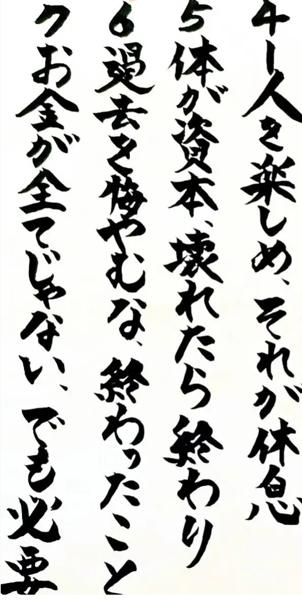 4 1人を楽しめ、それが休息
5 体が資本、壊れたら終わり
6 過去を悔やむな、終わったこと
7 お金が全てじゃない、でも必要